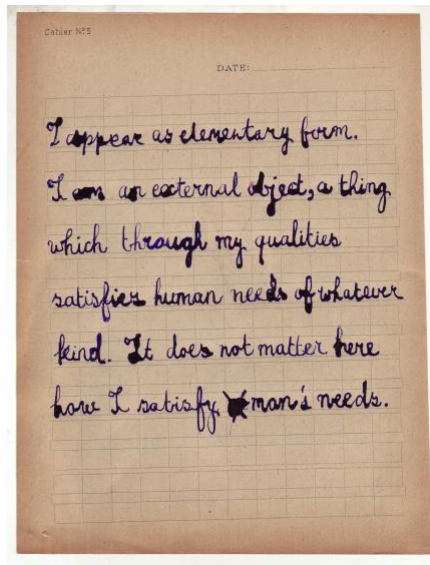 Cahier Nº5
DATE:
I appear as elementary form.
I am an external object, a thing
which through my qualities
satisfies human needs of whatever
kind. It does not matter here
how I satisfy man's needs.